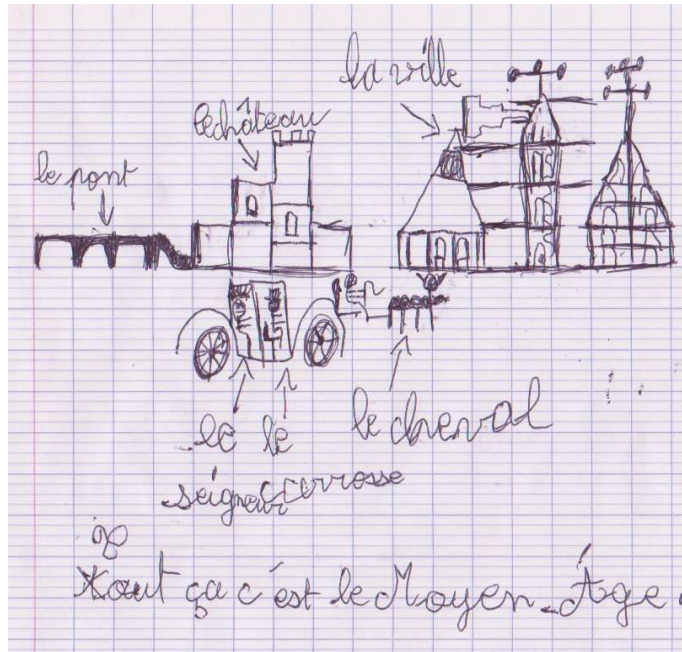 la ville
le château
le pont
le le
seigneur carrosse
le cheval
Tout ça c'est le Moyen-Âge.